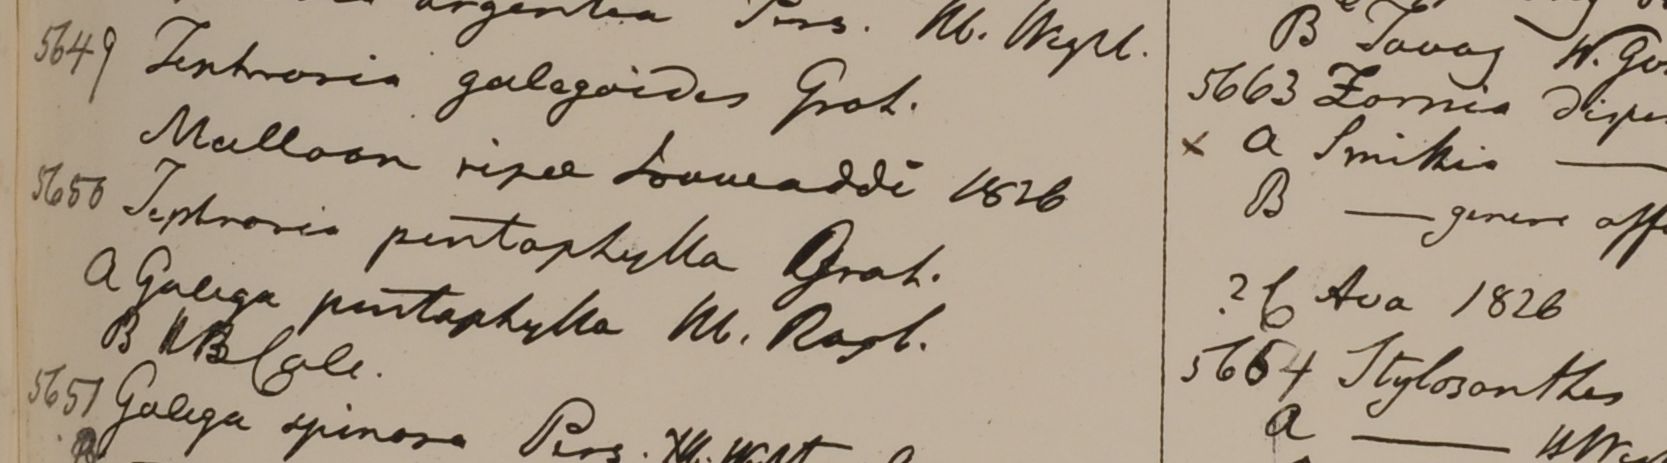 argentea Pers. Hb. Wight.
5649 Tephrosia galegoides Grah.
Mulloon ripae Irawaddi 1826
5650 Tephrosia pentaphylla Grah.
a Galega pentaphylla Hb. Roxb.
B HB Calc.
5651 Galega spinosa Pers. Hb. Wight
B Tavoy W. Go
5663 Zornia
x a Smithia —
B — genere aff
? C Ava 1826
5664 Stylosanthes
a —